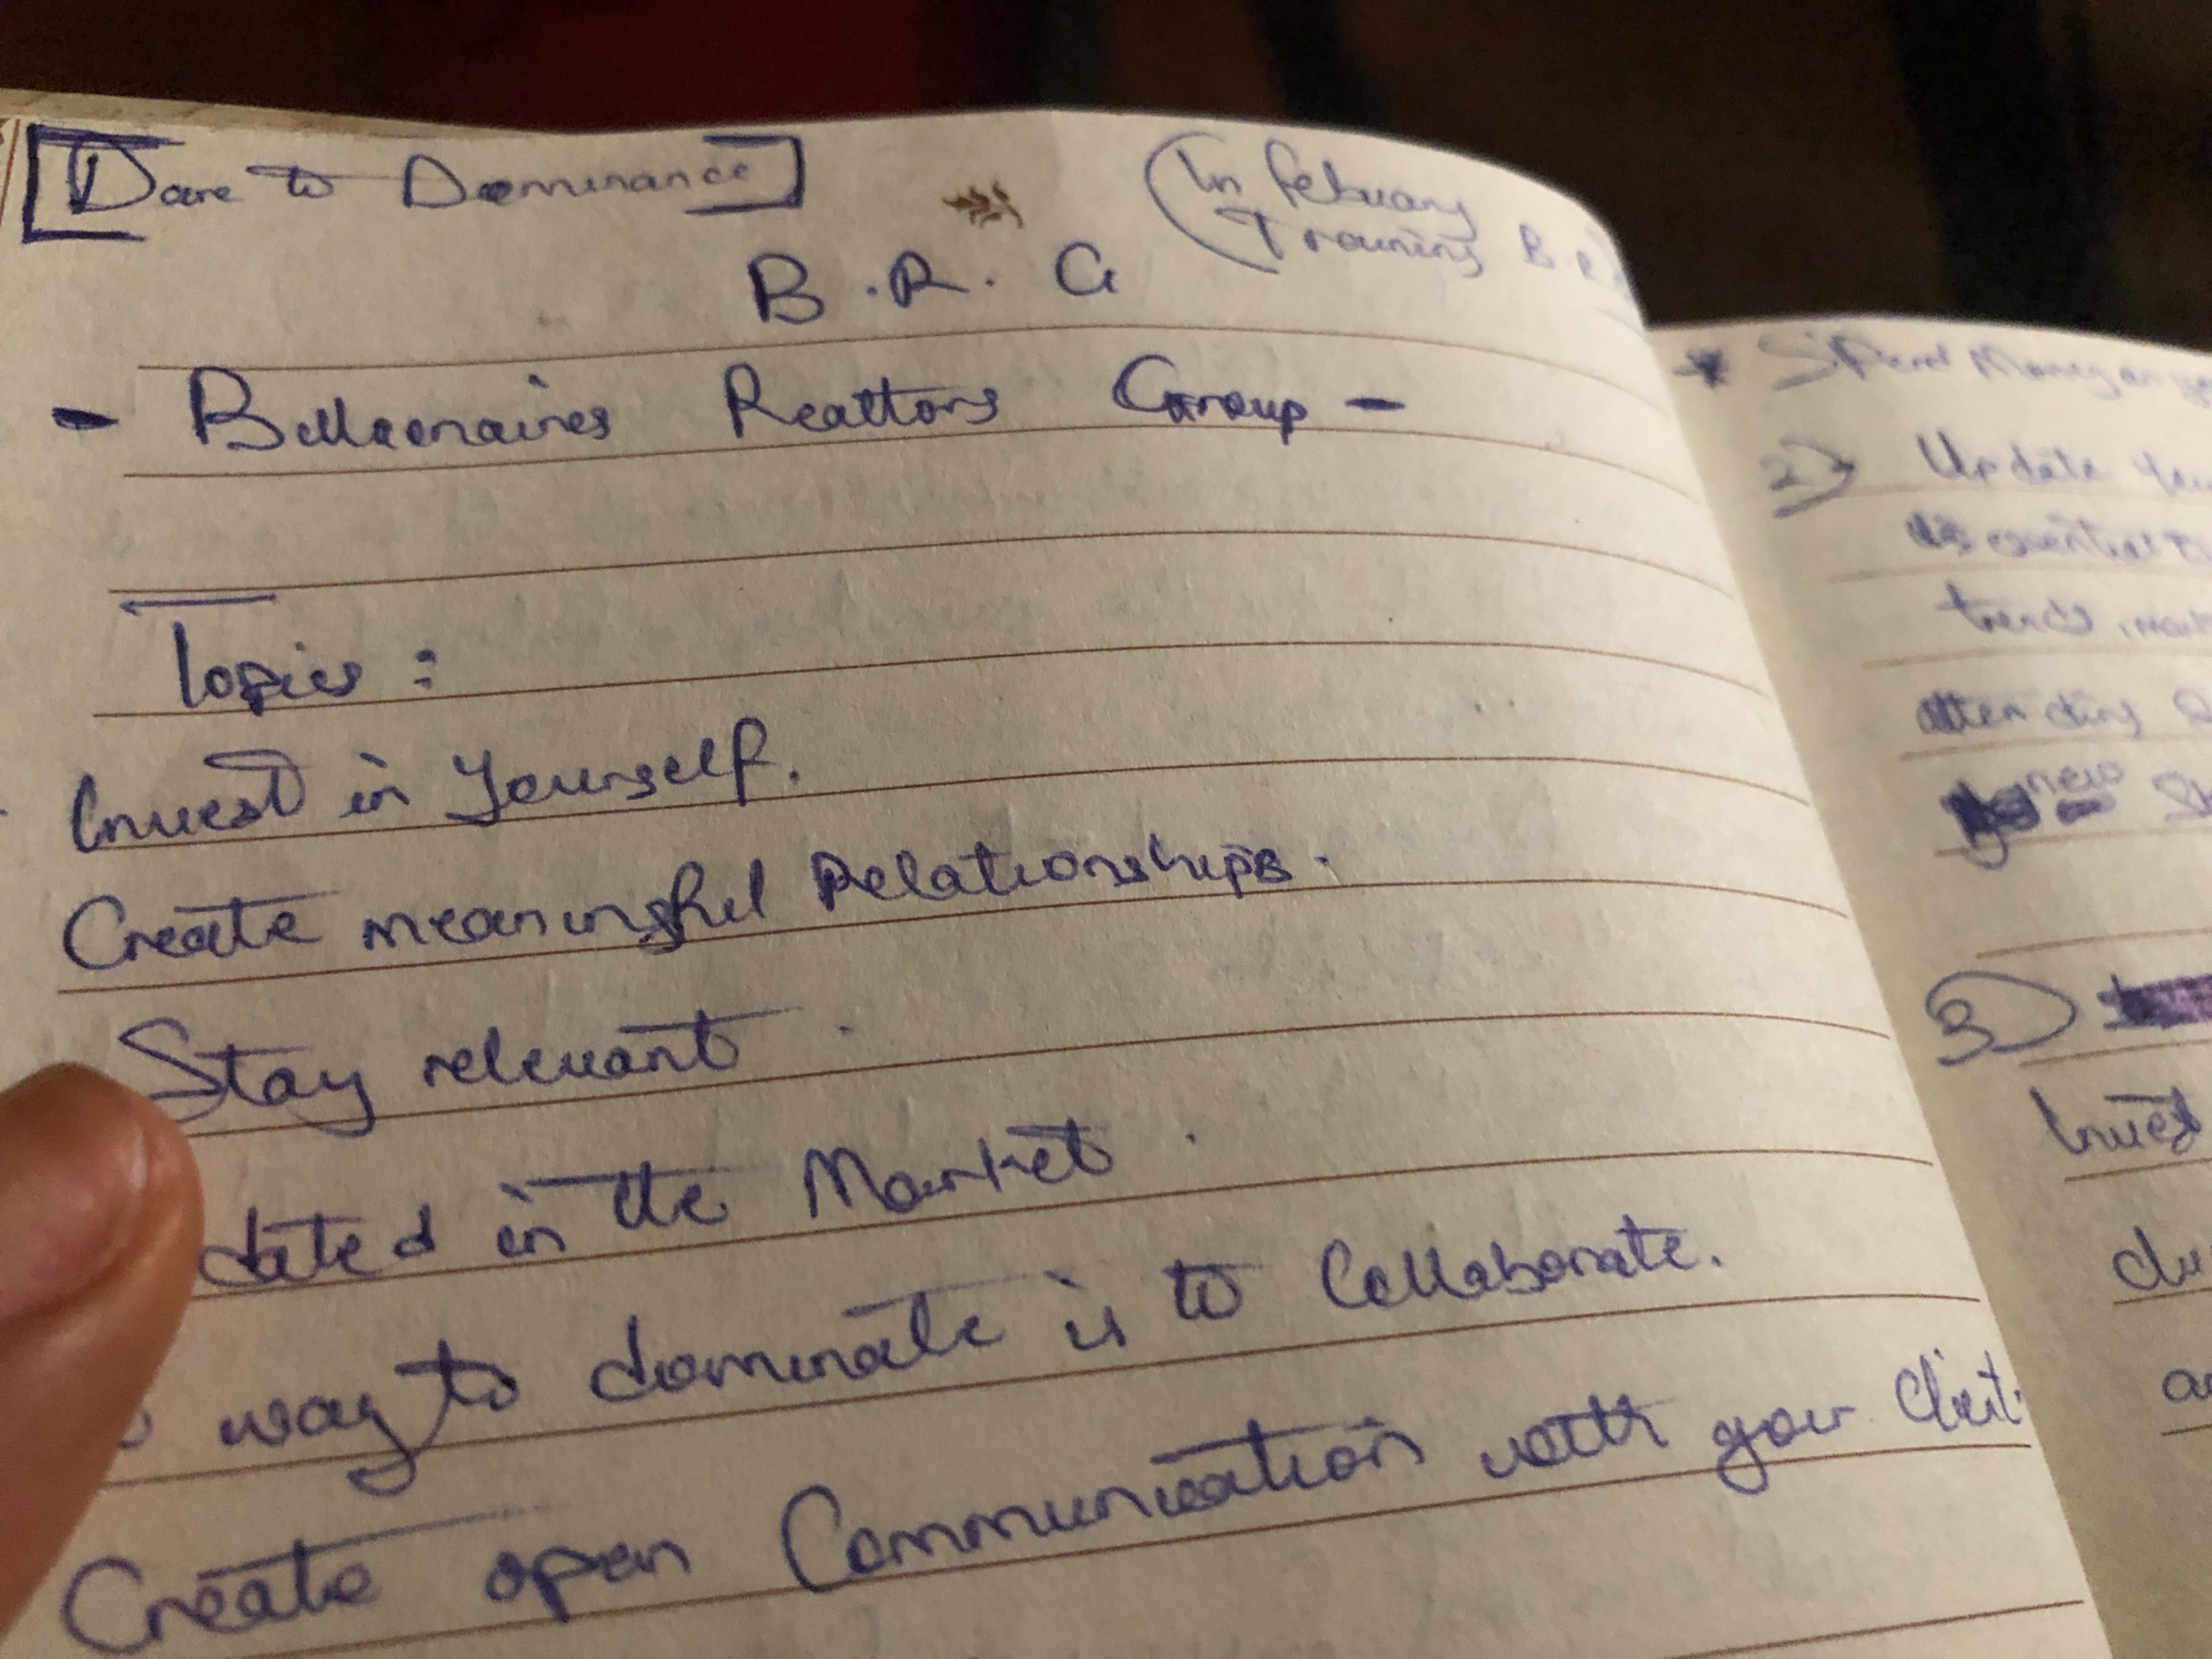 Dare to Dominance
In febuary
Training
B.R.G
- Billionaires Realtors Group -
Topics :
Invest in Yourself.
Create meaningful Relationships.
Stay relevant.
dated in the Market.
way to dominate is to Collaborate.
Create open Communication with your
* Spend Money on
2) Update
is essential
trends,
attending
new
3)
Invest